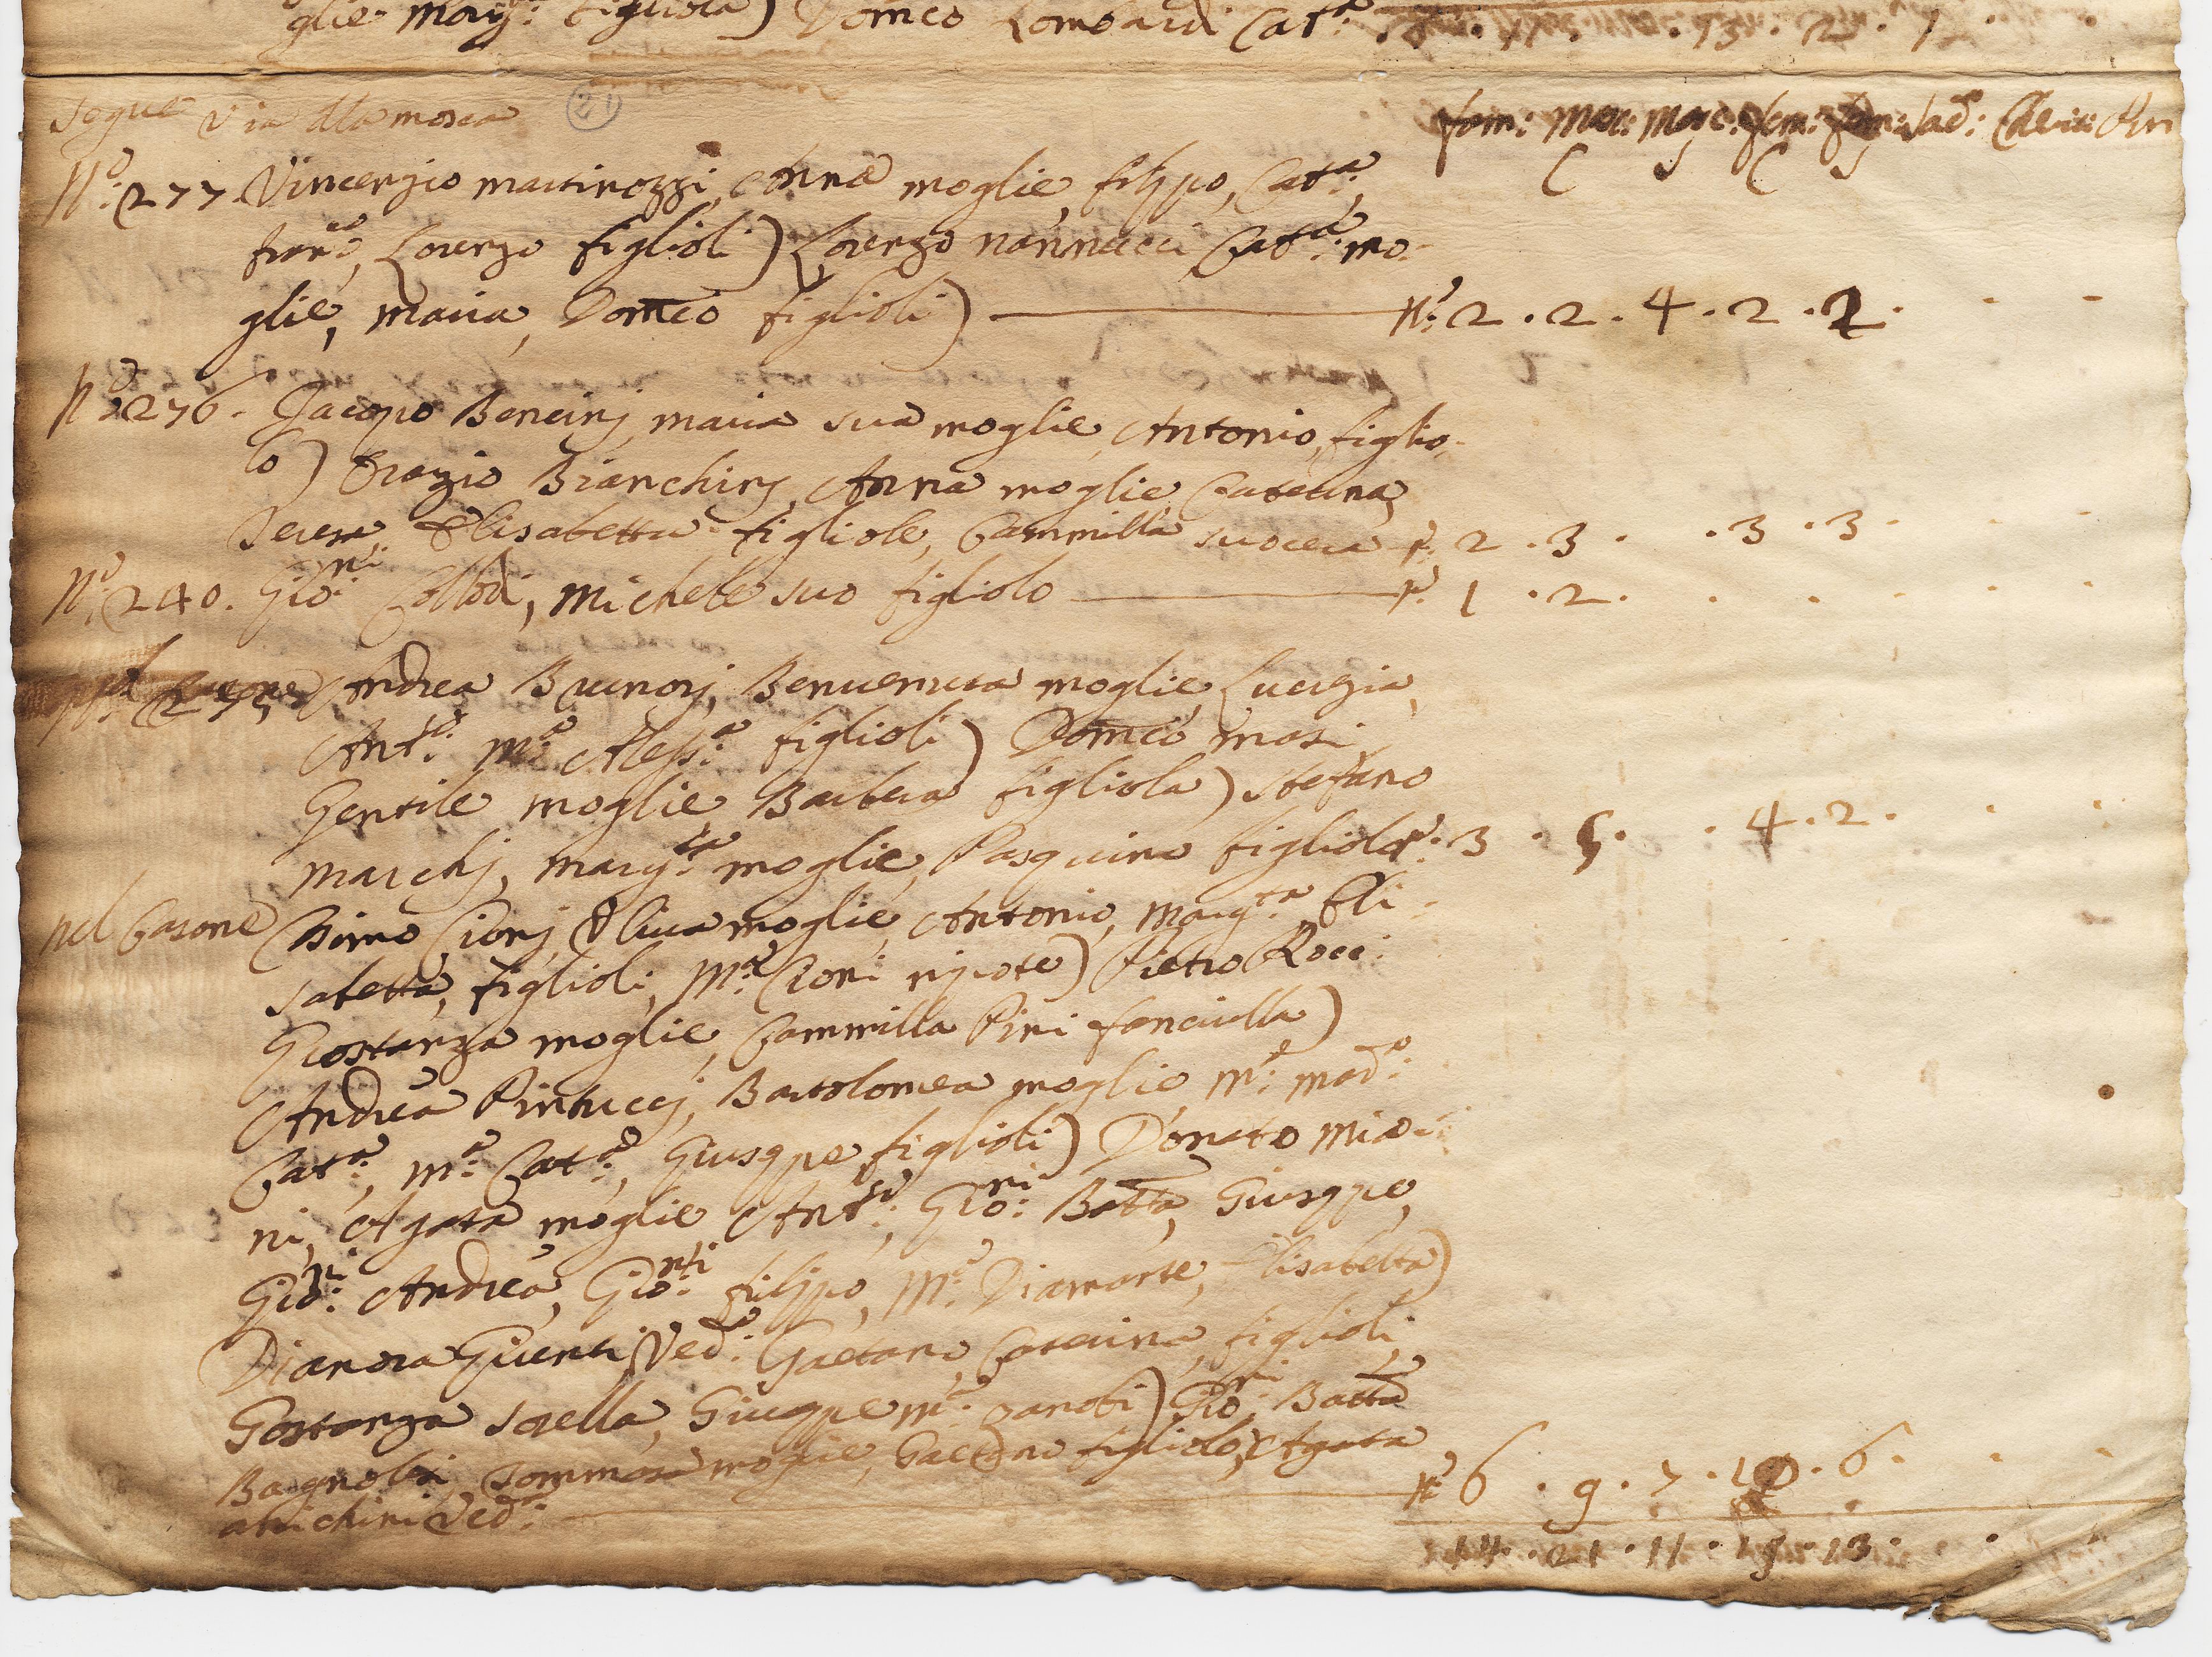 glie Marg.ta figliola) Dom.co Lombardi Cat.a . 8 . 11 . . 13 . 12 . 1 . .
Segue Via alla mosca 21
fam: Mas: Masc: fem: fem: Sad: Cleric:
C S C S
N.o 277. Vincenzio martinozzi, Anna moglie, filippo, Cat.a,
fran.co, Lorenzo figlioli) Lorenzo nannucci Cat.a mo-
glie, maria, Dom.co figlioli) N.o 2 . 2 . 4 . 2 . 2 . . .
N.o 276. Jacopo Bencinj, maria sua moglie, Antonio, figlio-
lo) Orazio Bianchinj, Anna moglie, Caterina,
Teresa, Elisabetta figliole, Cammilla suocera N.o 2 . 3 . . 3 . 3 . . .
N.o 240. Gio:ni Collodi, Michele suo figliolo N.o 1 . 2 . . . . . .
Andrea Buonorj, Benvenuta moglie, Lucrezia,
Ant.o M.a Aless.o figlioli) Dom.co masi,
Gentile moglie, Barbera figliola) Stefano
Marchj, Marg.ta moglie, Pasquino figliolo N.o 3 . 5 . . 4 . 2 . . .
nel Casone Cionj, Oliva moglie, Antonio, Marg.ta, Eli-
sabetta, figlioli, M.a Cioni nipote) Pietro Rocci
Gostanza moglie, Cammilla Pini fanciulla)
Andrea Pintuccj, Bartolomea moglie, M.a Mad.a
Cat.a, M.a Cat.a, Giuseppe figlioli) Donato Mia-
ni, Agata moglie, Ant.o, Gio:ni Batta, Giuseppe,
Gio:ni Andrea, Gio:ni filippo, M.a Diamante, Elisabetta)
Dianora Giunti Ved.a Gaetano, Caterina, figlioli,
Gostanza sorella, Giuseppe M.a zanobi) Gio:ni Batta
Bagnolesi, Tommasa moglie, Gaetano figliolo, Agata
Ved.a N.o 6 . 9 . 7 . 10 . 6 . . .
14 . 21 . 11 . 19 . 13 . . .